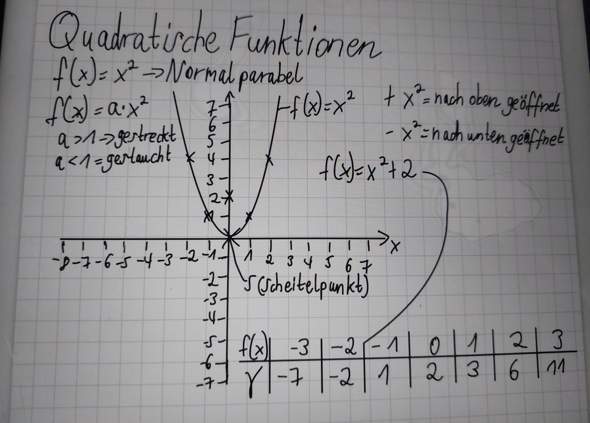 Quadratische Funktionen
f(x) = x² → Normalparabel
f(x) = a · x²
a > 1 → gestreckt
a < 1 = gestaucht
f(x) = x²
+ x² = nach oben geöffnet
- x² = nach unten geöffnet
f(x) = x² + 2
7
6
5
4
3
2
1
-8 -7 -6 -5 -4 -3 -2 -1 1 2 3 4 5 6 7 x
-2
-3
-4
-5
-6
-7
S (Scheitelpunkt)
f(x) -3 -2 -1 0 1 2 3
Y -7 -2 1 2 3 6 11